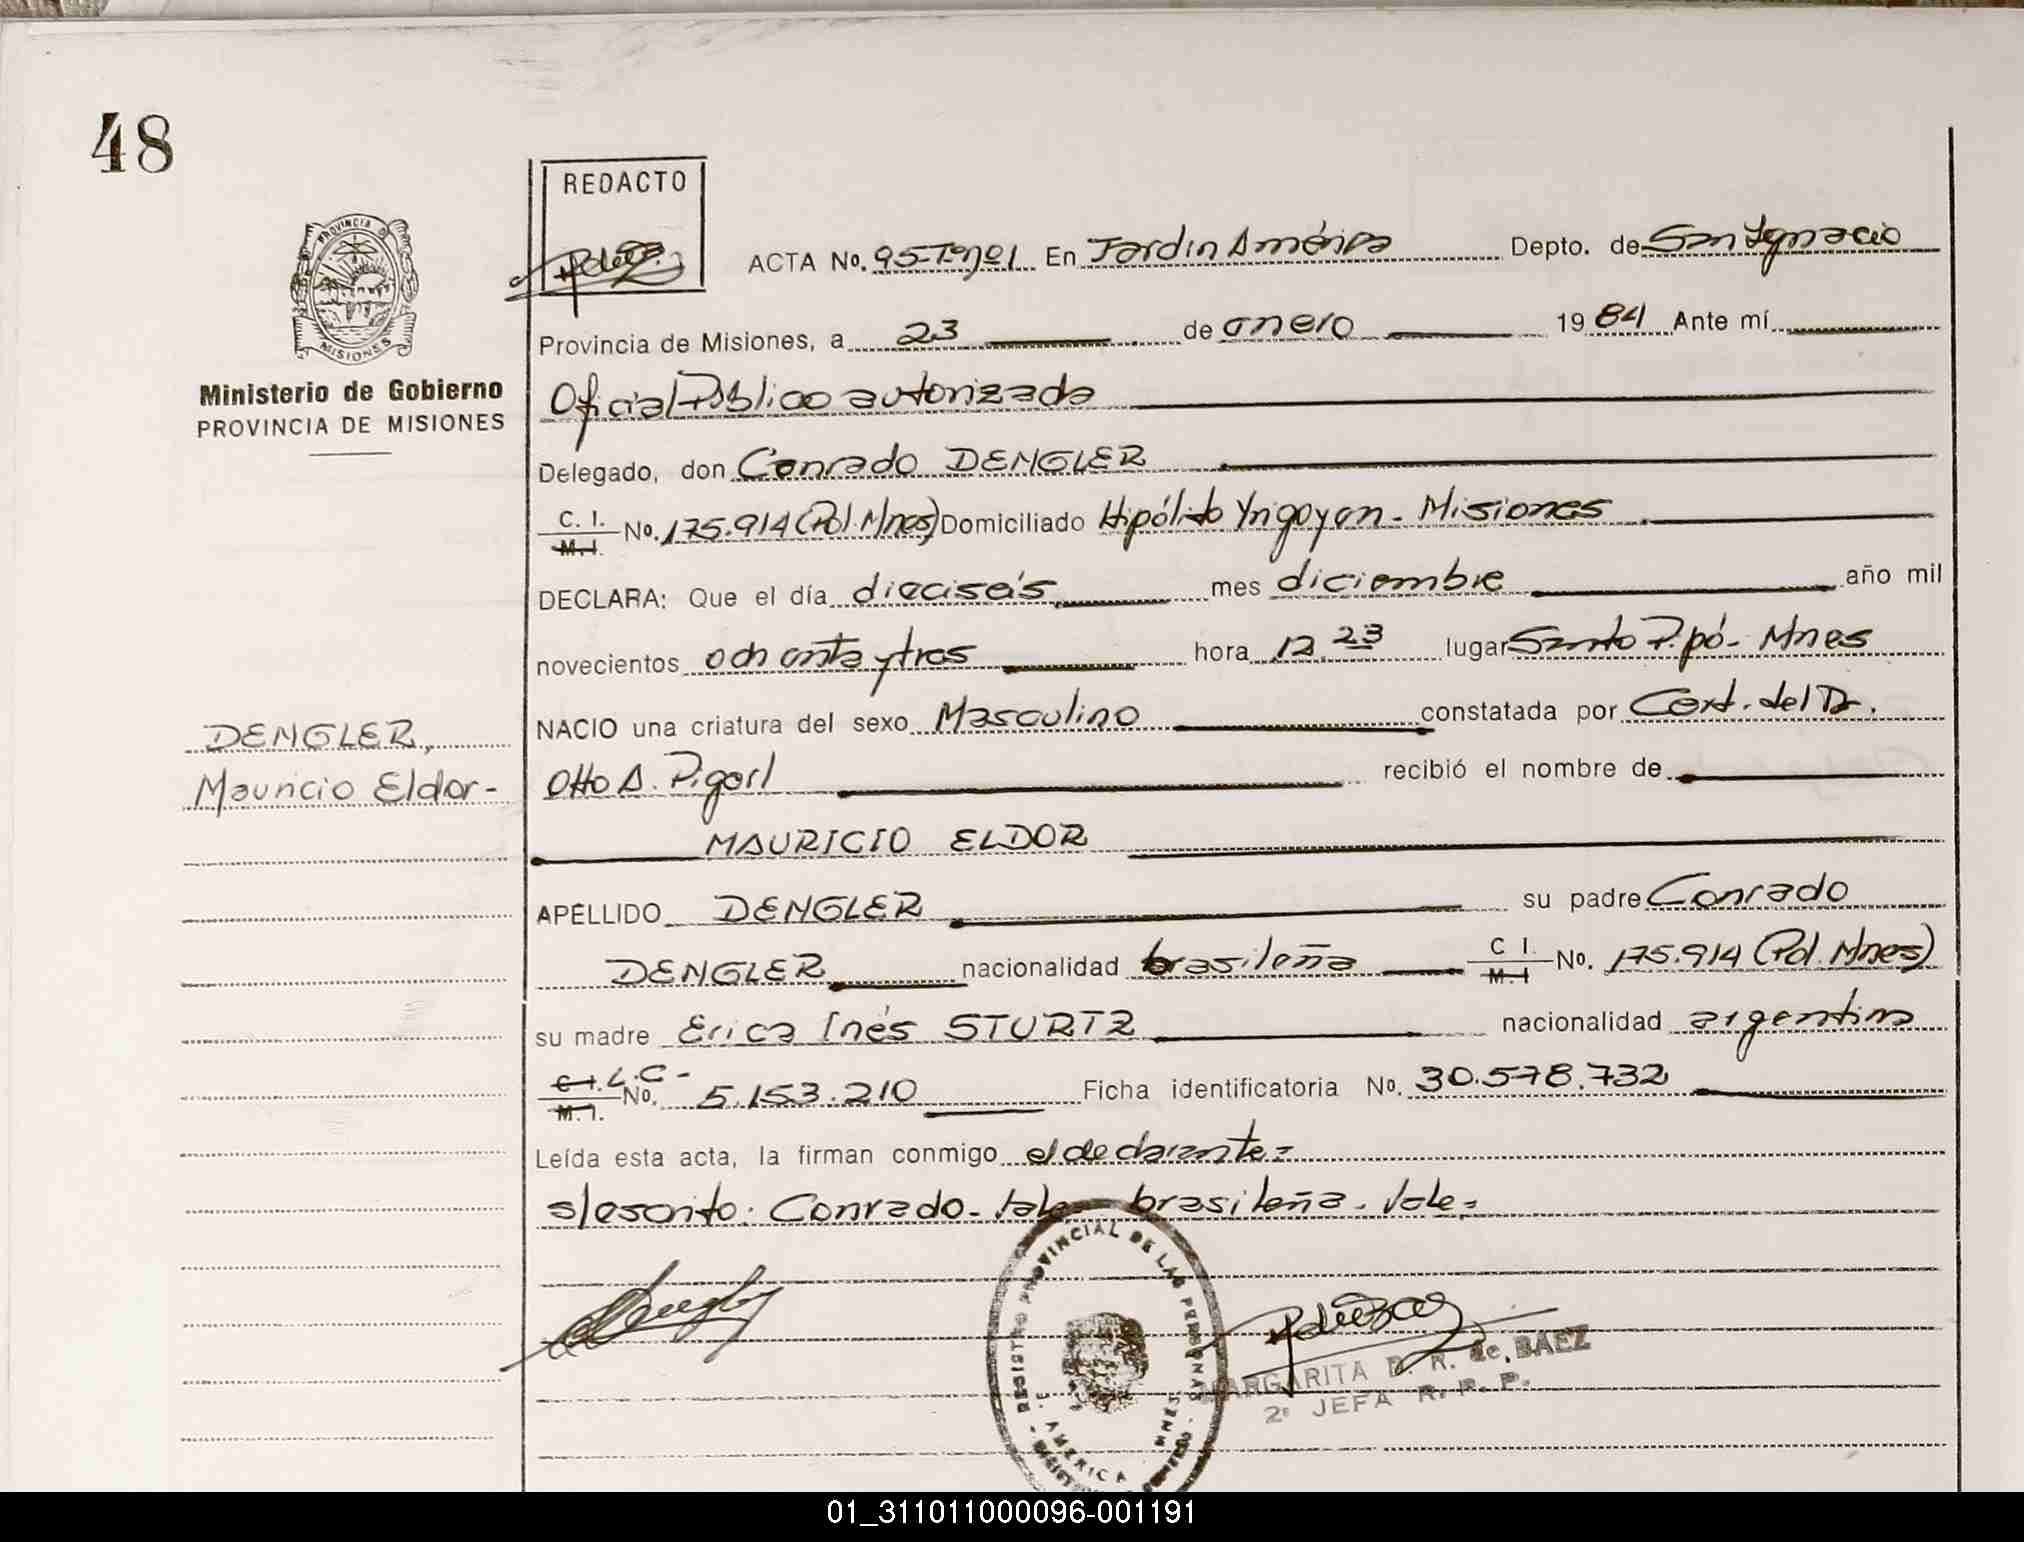 48
REDACTO
PROVINCIA D
MISIONES
Ministerio de Gobierno
PROVINCIA DE MISIONES
ACTA No. 95-Tº nº1 En Jardin América Depto. de San Ignacio
Provincia de Misiones, a 23 de enero 1984 Ante mí
Oficial Público autorizada
Delegado, don Conrado DENGLER
C. I. M. I. No. 175.914 (Pol. Mnes) Domiciliado Hipólito Yrigoyen - Misiones
DECLARA: Que el día dieciséis mes diciembre año mil
novecientos ochenta y tres hora 12.23 lugar Santo Pipó - Mnes
NACIO una criatura del sexo Masculino constatada por Cert. del Dr.
DENGLER,
Mauricio Eldor-
Otto A. recibió el nombre de
MAURICIO ELDOR
APELLIDO DENGLER su padre Conrado
DENGLER nacionalidad brasileña C I. M. I No. 175.914 (Pol. Mnes)
su madre Erica Inés STURTZ nacionalidad argentina
C.I. L.C- M. I. No. 5.153.210 Ficha identificatoria No. 30.578.732
Leída esta acta, la firman conmigo el declarante=
s/escrito. Conrado- brasileña. Vale=
REGISTRO PROVINCIAL DE LAS PERSONAS
J. AMERICA MNES
MARGARITA R. de BAEZ
2ª JEFA R. P. P.
01_311011000096-001191